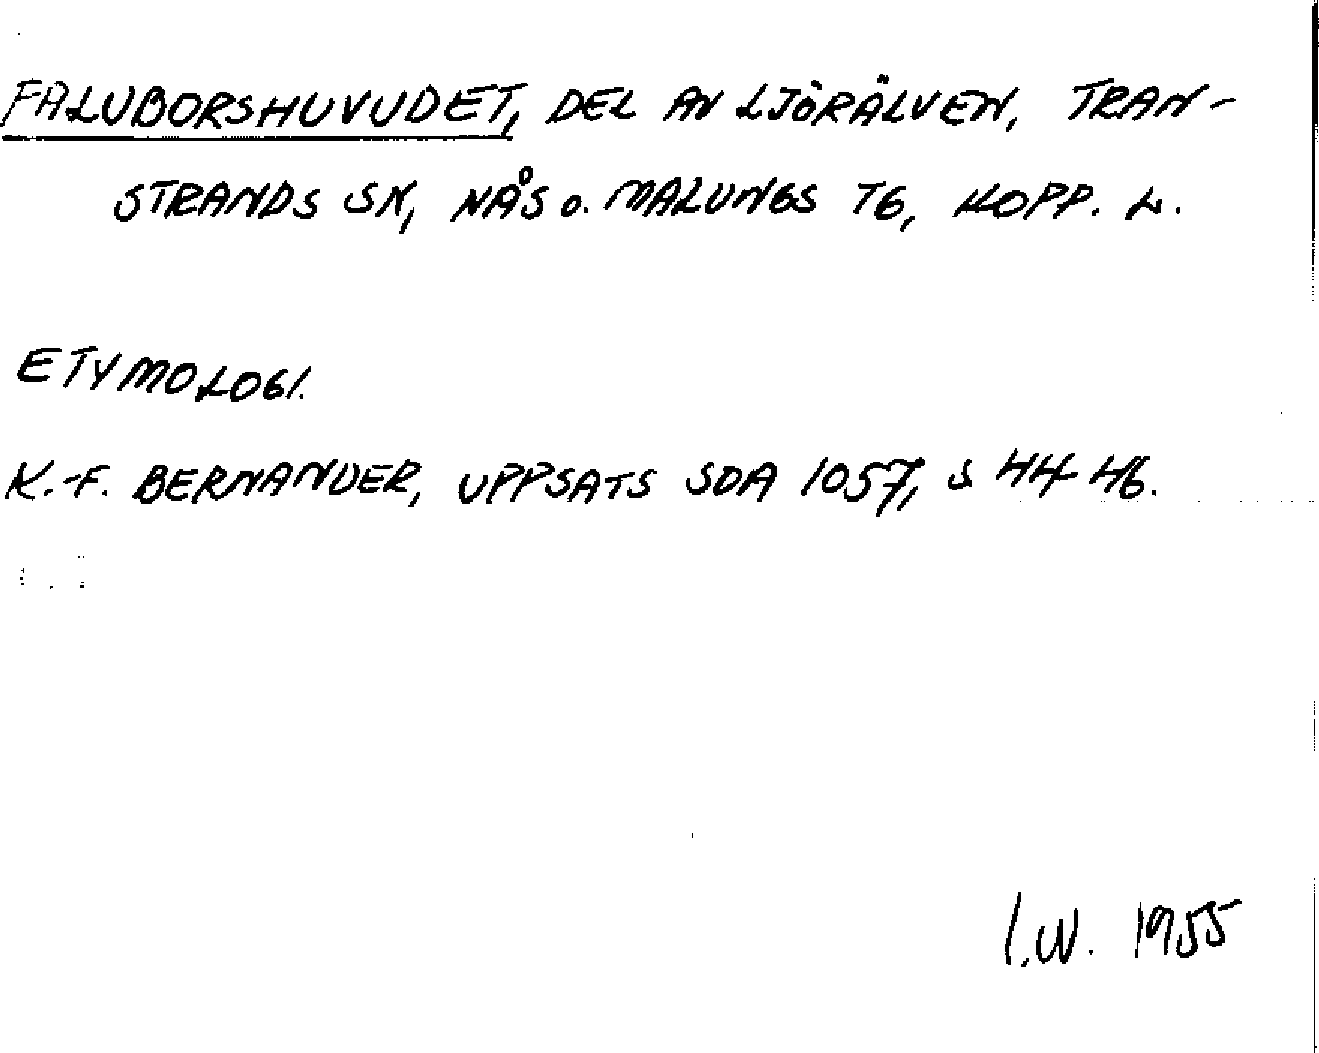 FALUBORSHUVUDET, DEL AV LJÖRÄLVEN, TRAN-
STRANDS SN, NÅS O. MALUNGS TG, KOPP. L.
ETYMOLOGI.
K.-F. BERNANDER, UPPSATS SOA 1057, S 44-46.
I.W. 1955